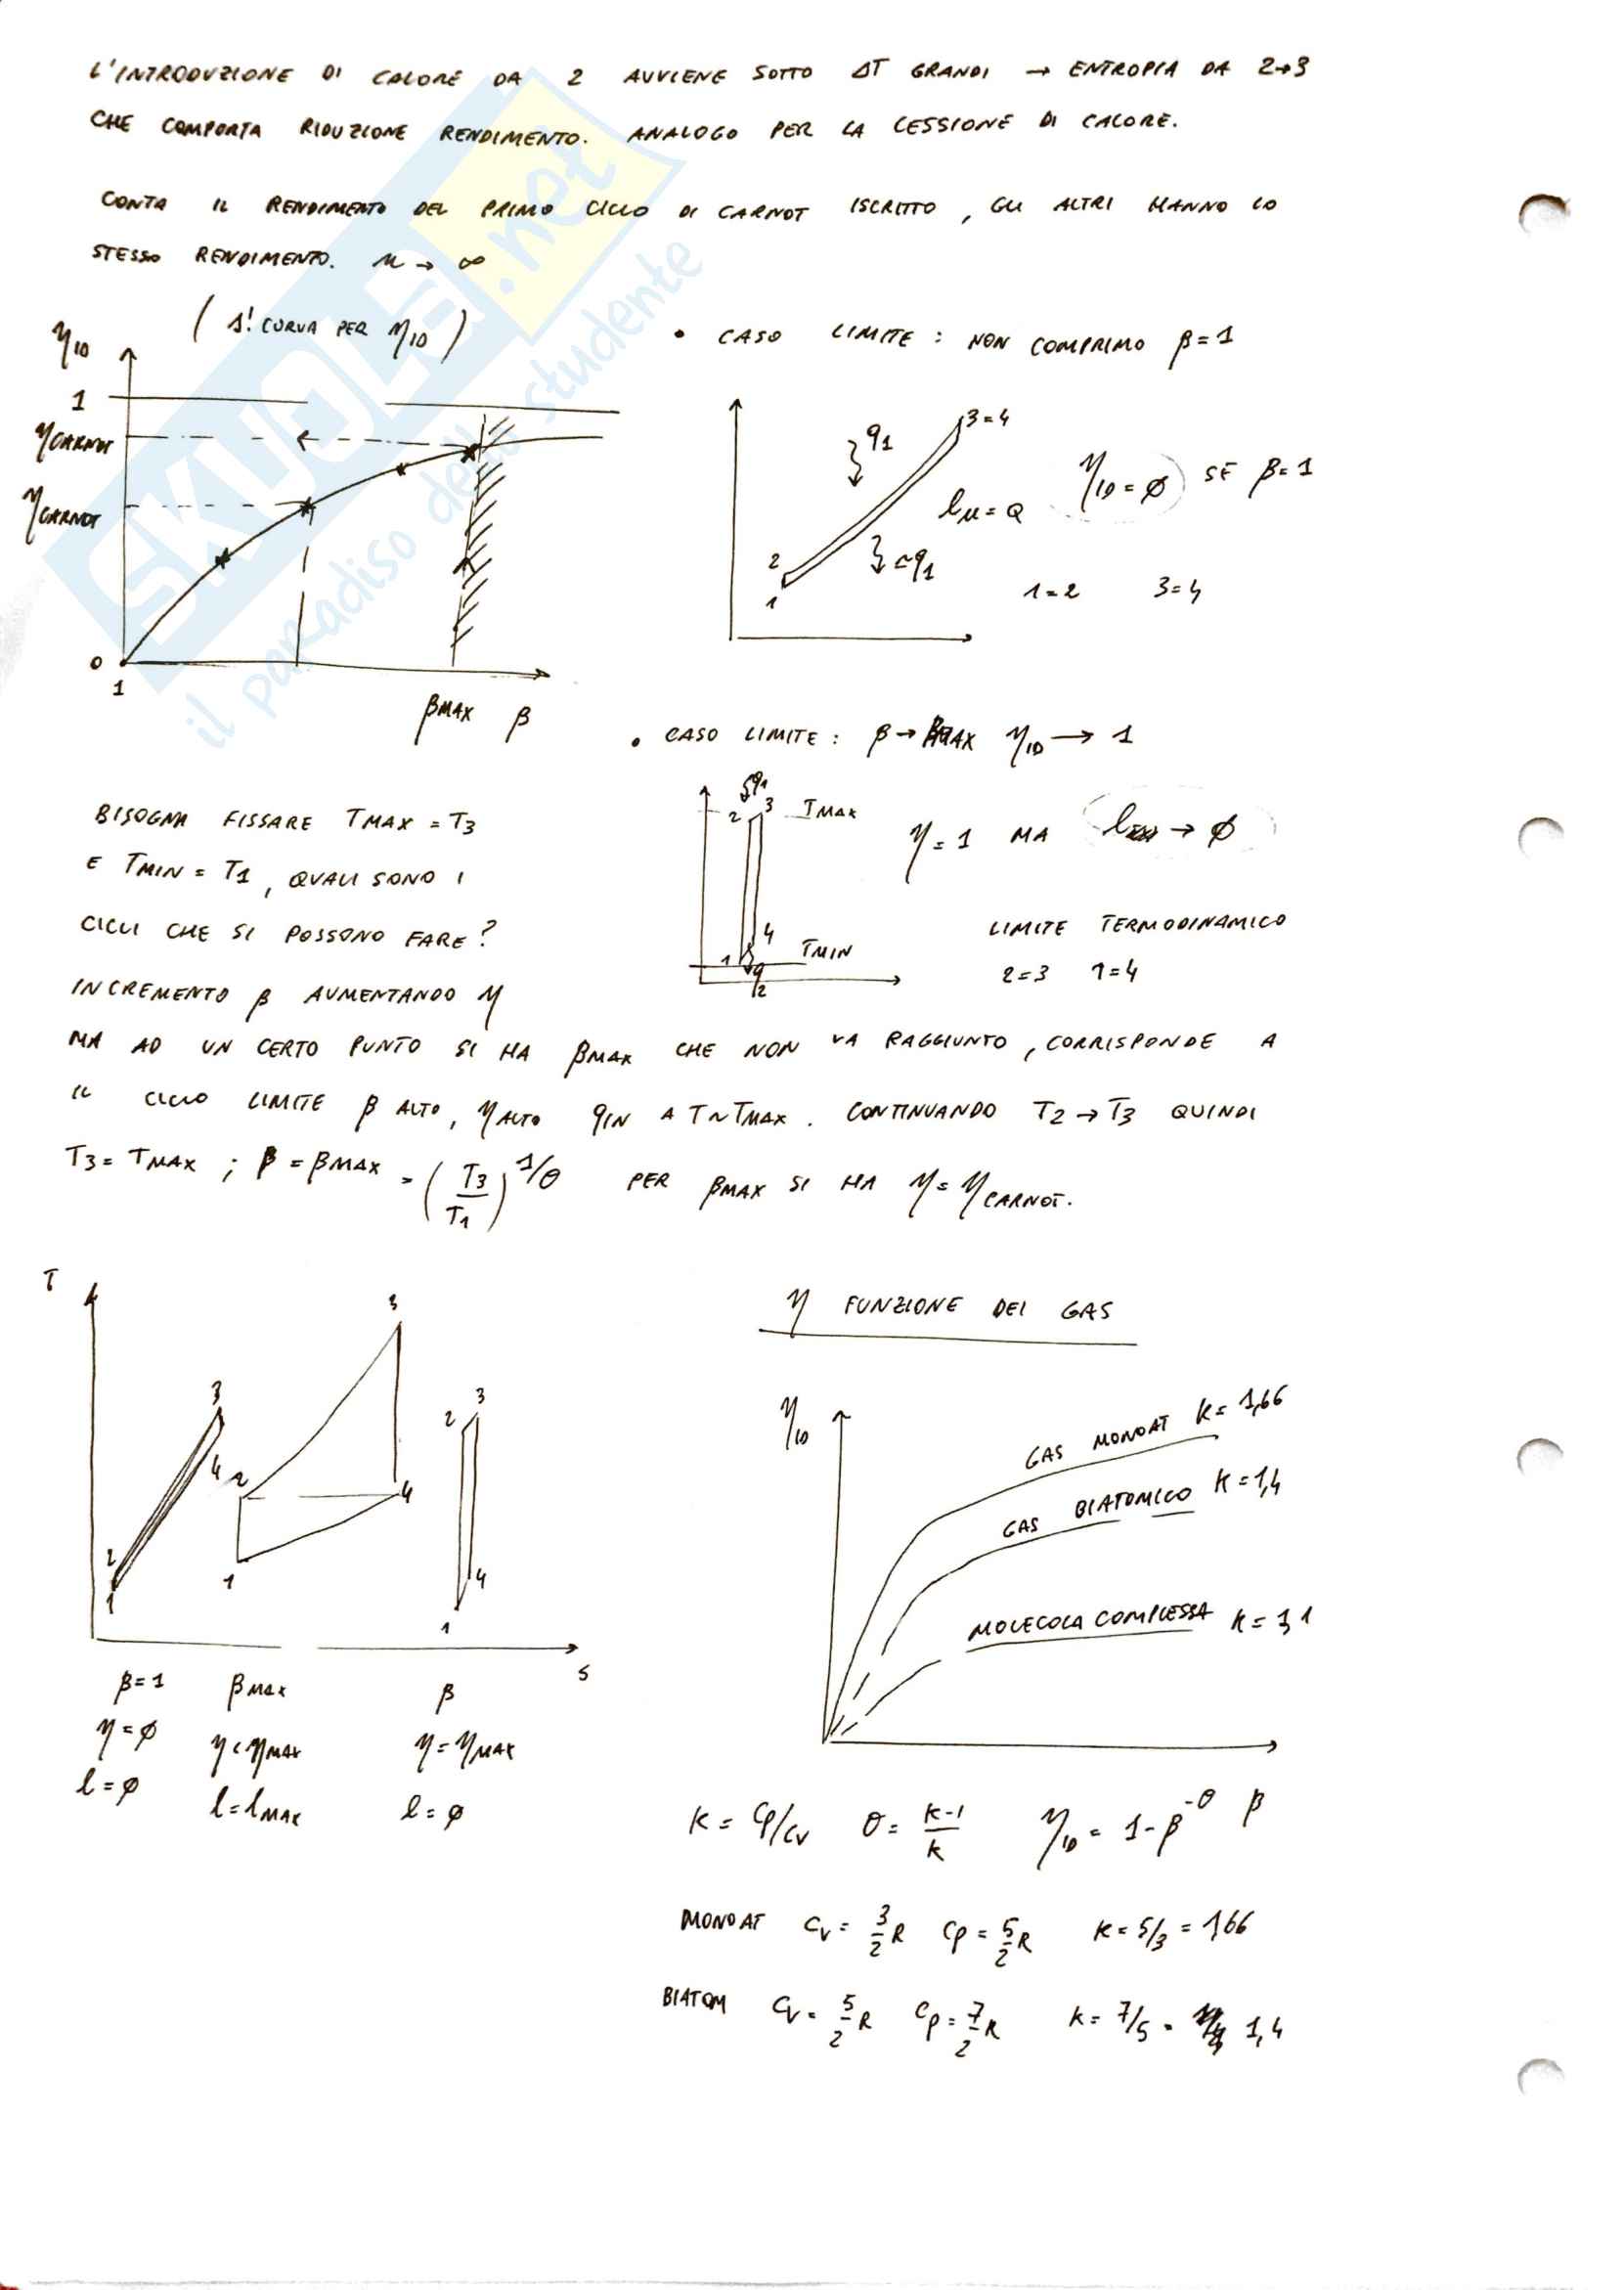 L'INTRODUZIONE DI CALORE DA 2 AVVIENE SOTTO ΔT GRANDI → ENTROPIA DA 2→3
CHE COMPORTA RIDUZIONE RENDIMENTO. ANALOGO PER LA CESSIONE DI CALORE.
CONTA IL RENDIMENTO DEL PRIMO CICLO DI CARNOT ISCRITTO, GLI ALTRI HANNO LO
STESSO RENDIMENTO. n → ∞
(1! CURVA PER ηID)
ηID
1
ηCARNOT
ηCARNOT
0
1
βMAX β
• CASO LIMITE: NON COMPRIMO β=1
3=4
q1
2
1
-q1
lu=0
ηID=ϕ SE β=1
1=2 3=4
• CASO LIMITE: β→βMAX ηID → 1
q1
2 3 TMAX
4
1 TMIN
q2
η=1 MA l → ϕ
LIMITE TERMODINAMICO
2=3 1=4
BISOGNA FISSARE TMAX = T3
E TMIN = T1, QUALI SONO I
CICLI CHE SI POSSONO FARE?
INCREMENTO β AUMENTANDO η
MA AD UN CERTO PUNTO SI HA βMAX CHE NON VA RAGGIUNTO, CORRISPONDE A
IL CICLO LIMITE β ALTO, ηALTO qIN A T~TMAX. CONTINUANDO T2→T3 QUINDI
T3=TMAX ; β=βMAX = (T3/T1)^1/θ PER βMAX SI HA η=ηCARNOT.
T
3
4
2
1
3
2
4
1
3
2
4
1
S
β=1 βMAX β
η=ϕ η<ηMAX η=ηMAX
l=ϕ l=lMAX l=ϕ
η FUNZIONE DEI GAS
ηID
GAS MONOAT K=1,66
GAS BIATOMICO K=1,4
MOLECOLA COMPLESSA K=1,1
β
K=Cp/Cv θ=K-1/K ηID=1-β^-θ
MONOAT Cv=3/2R Cp=5/2R K=5/3=1,66
BIATOM Cv=5/2R Cp=7/2R K=7/5=1,4
SKUOLA.net
il paradiso dello studente